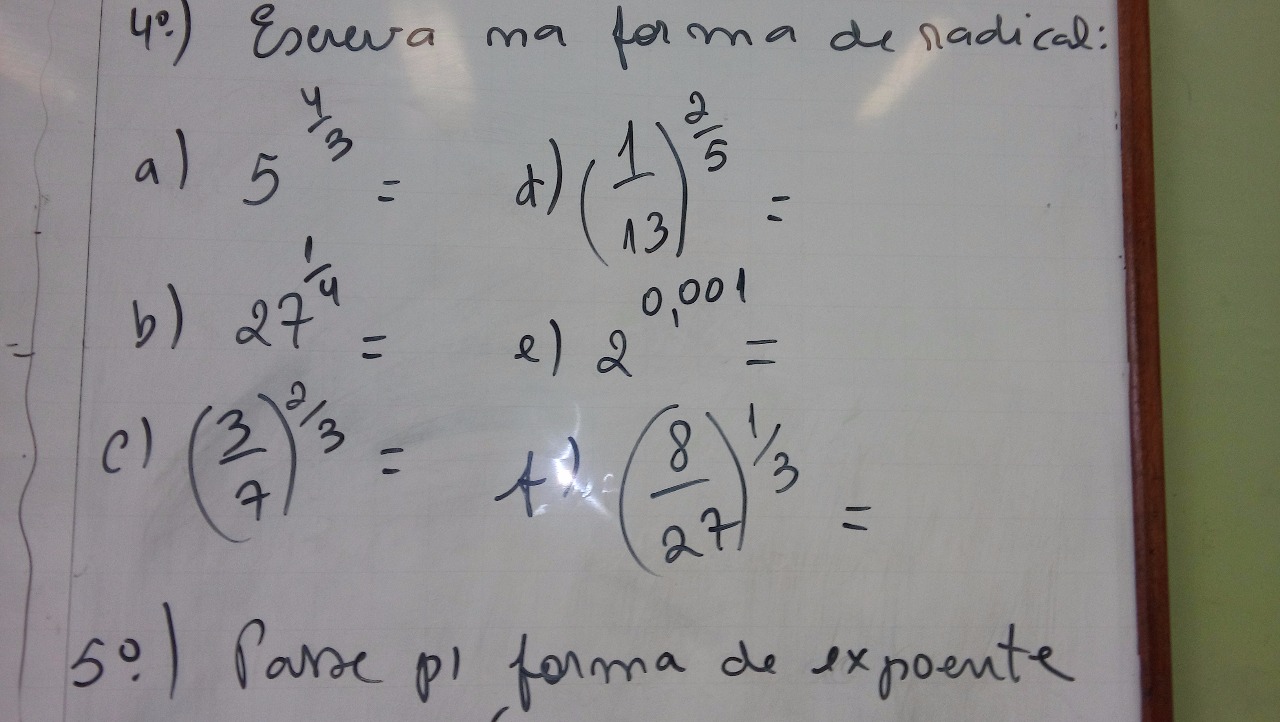 4º) Escreva na forma de radical:
a) 5^4/3 = d) (1/13)^2/5 =
b) 27^1/4 = e) 2^0,001 =
c) (3/7)^2/3 = f) (8/27)^1/3 =
5º) Passe p/ forma de expoente